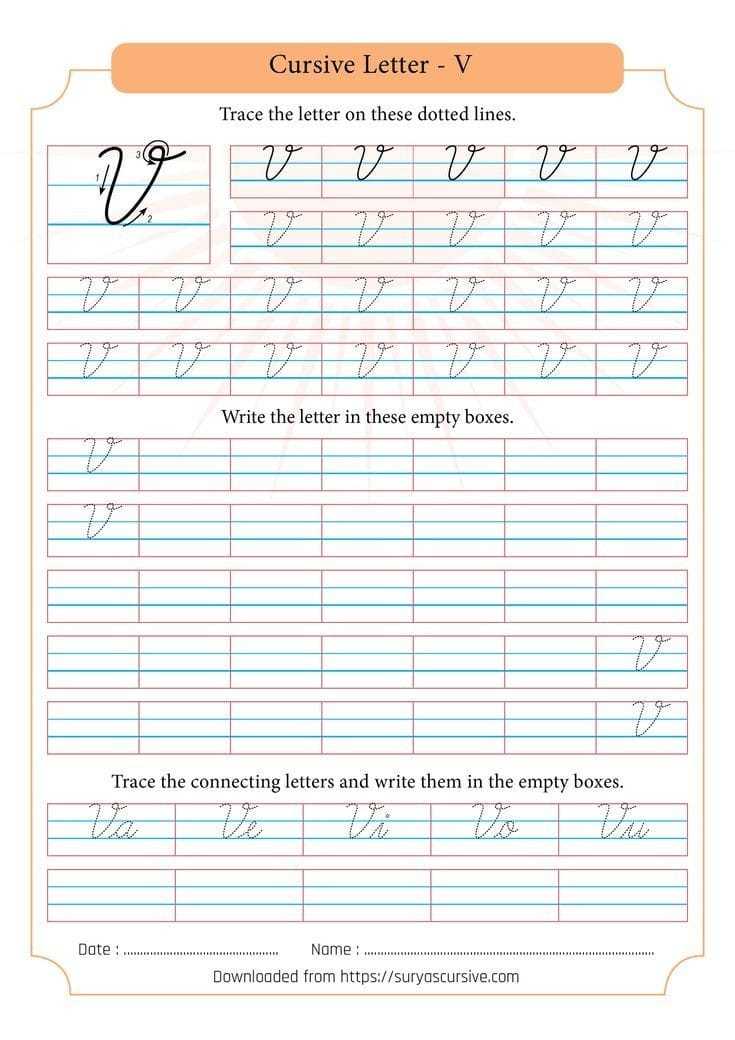 Cursive Letter - V
Trace the letter on these dotted lines.
1 2 3 V
V V V V V
V V V V V
V V V V V V V
V V V V V V V
Write the letter in these empty boxes.
V
V
V
V
Trace the connecting letters and write them in the empty boxes.
Va Ve Vi Vo Vu
Date : ............................................... Name : ........................................................................................
Downloaded from https://suryascursive.com